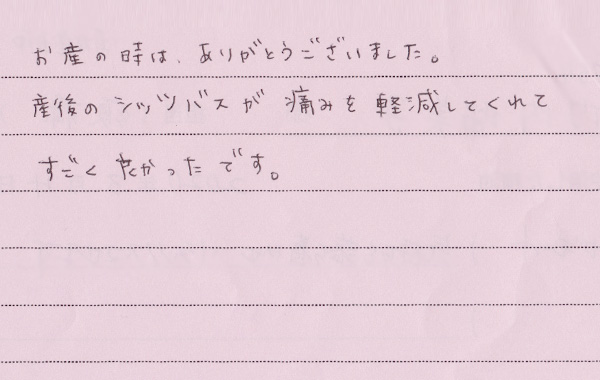 お産の時は、ありがとうございました。
産後のシッツバスが痛みを軽減してくれて
すごく良かったです。